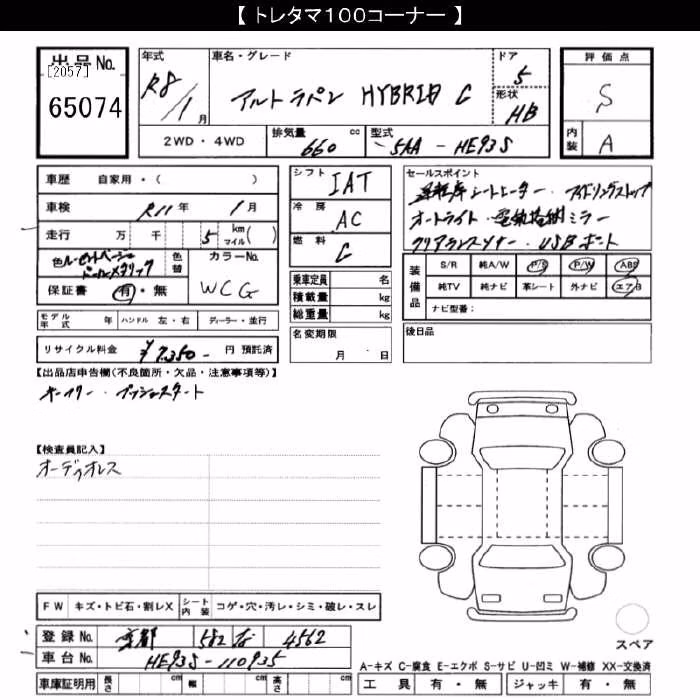 【 トレタマ100コーナー 】
出品No.
[2057]
65074
年式 R8/1月
車名・グレード アルトラパン HYBRID G
ドア 5
形状 HB
評価点 S
内装 A
2WD・4WD 排気量 660 cc 型式 5AA-HE93S
車歴 自家用・( )
車検 R11年 1月
走行 万 千 5 km マイル( )
色 色替 カラーNo. WCG
保証書 有・無
モデル年式 年 ハンドル 左・右 ディーラー・並行
リサイクル料金 ¥7,350- 円 預託済
シフト IAT
冷房 AC
燃料 G
乗車定員 名
積載量 kg
総重量 kg
名変期限 月 日
セールスポイント
運転席シートヒーター・アイドリングストップ
オートライト・電動格納ミラー
クリアランスソナー・USBポート
装備品 S/R 純A/W P/S P/W ABS
純TV 純ナビ 革シート 外ナビ エアB
ナビ型番:
後日品
【出品店申告欄(不良箇所・欠品・注意事項等)】
キーフリー・プッシュスタート
【検査員記入】
オーディオレス
FW キズ・トビ石・割レX シート内装 コゲ・穴・汚レ・シミ・破レ・スレ
登録No. 京都 582 4562
車台No. HE93S-110935
車庫証明用 長さ cm 幅 cm 高さ cm
スペア
A-キズ C-腐食 E-エクボ S-サビ U-凹ミ W-補修 XX-交換済
工具 有・無 ジャッキ 有・無